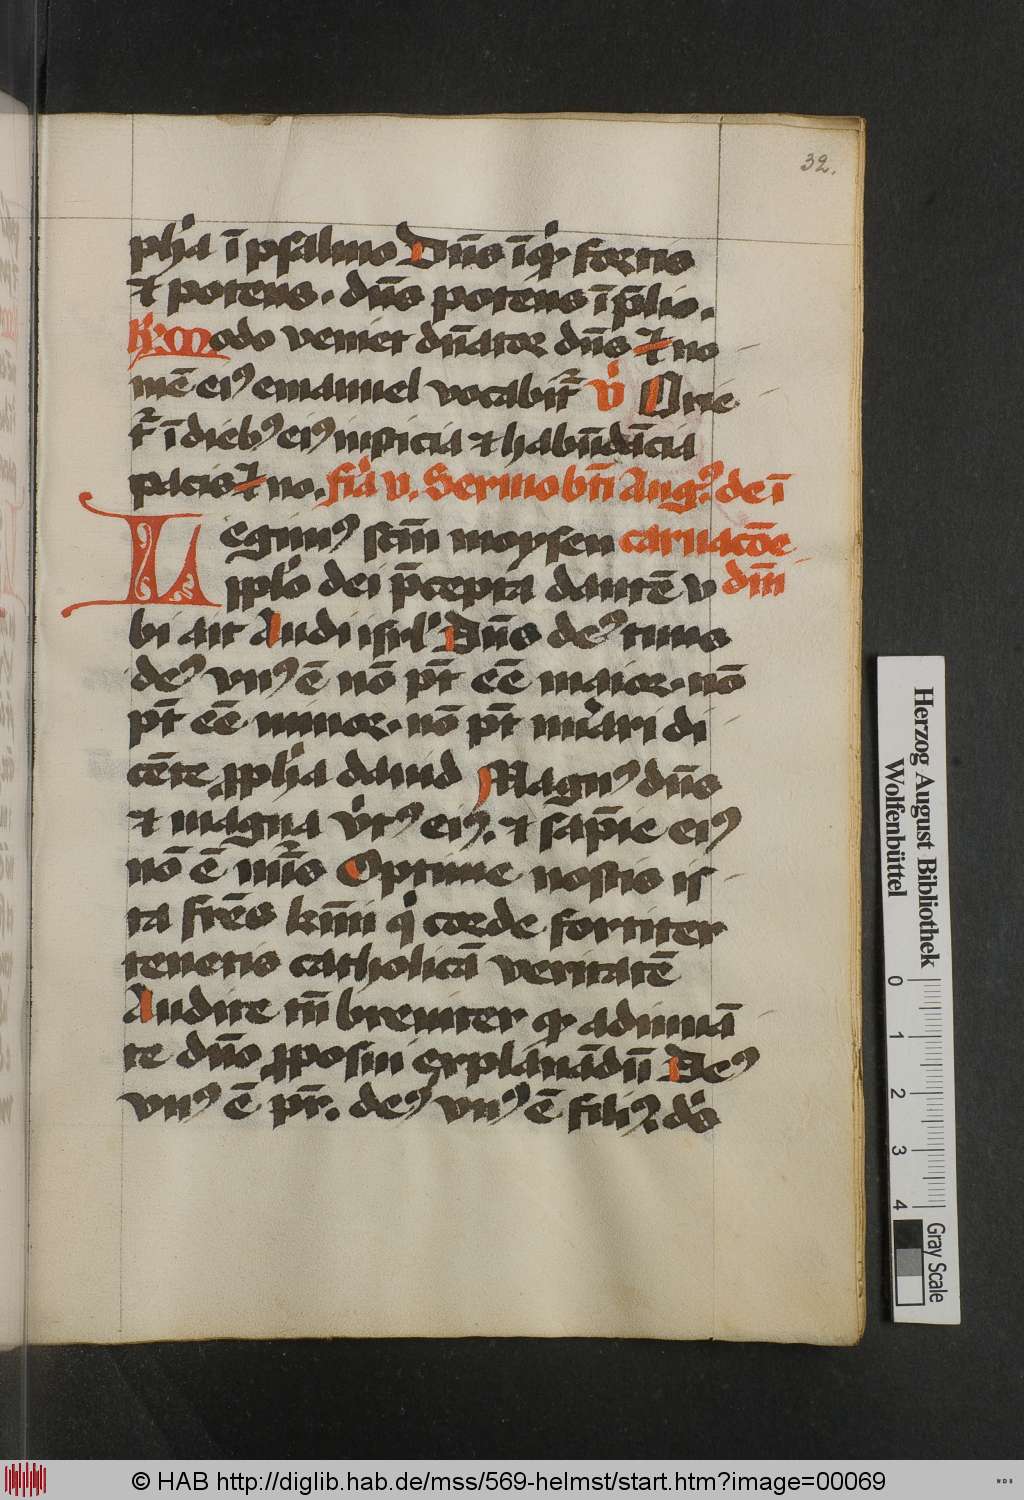 32.
ph'a ī psalmo Dn̄s īq̄t fortis
et potens. dn̄s potens ī p̄lio.
Rm Modo veniet dn̄ator dn̄s et no
mē eiꝰ emanuel vocabit᷑ v' Orie
t᷑ ī diebꝰ eiꝰ iusticia et habūdācia
pacis et no. fīa v. Sermo bt̄i Augꝰ. de ī
Legimꝰ sc̄m moysen carnacōe
pplo dei p̄cepta dantē v dn̄i
bi ait Audi isrl' Dn̄s deꝰ tuus
deꝰ vnꝰ ē nō pt̄ eē maior. nō
pt̄ eē minor. nō pt̄ mirari di
cēte ꝓph'a dauid Magnꝰ dn̄s
et magna v'tꝰ eiꝰ. et sāpīe eiꝰ
nō ē nūs Optime nostis is
ta frēs km̄i q' corde fortiter
tenetis catholicā veritatē
Audite tn̄ breuiter qd adiuuā
te dn̄o ꝓposui explanādū Deꝰ
vnꝰ ē pr̄. deꝰ vnꝰ ē filiꝰ. ds̄
Herzog August Bibliothek
Wolfenbüttel
0 1 2 3 4
Gray Scale
© HAB http://diglib.hab.de/mss/569-helmst/start.htm?image=00069